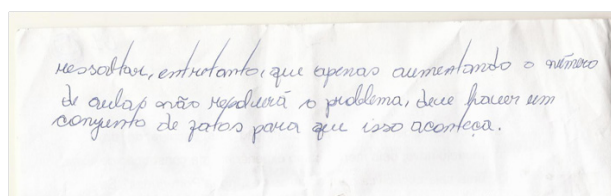 ressaltar, entretanto, que apenas aumentando o número
de aulas não resolverá o problema, deve haver um
conjunto de fatos para que isso aconteça.